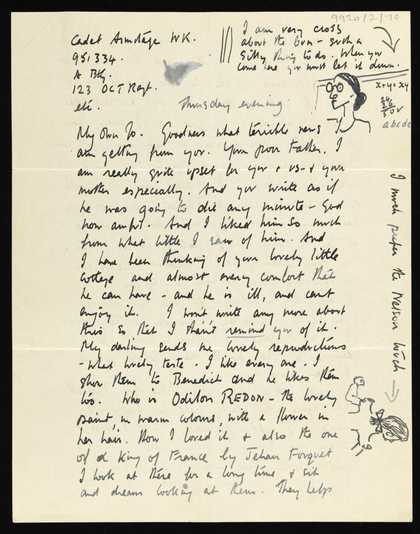 9920/2/70
Cadet Armitage WK.
951334.
A Bty.
123 OCT Regt.
etc.
I am very cross
about the bun - such a
silly thing to do. When you
come me you must let it down.
x+y+xy
abcde
Thursday evening
My Own Jo. Goodness what terrible news I
am getting from you. Your poor Father. I
am really quite upset for you & us - & your
mother especially. And you write as if
he was going to die any minute - God
how awful. And I liked him so much
from what little I saw of him. And
I have been thinking of your lovely little
cottage and almost every comfort that
he can have - and he is ill, and cant
enjoy it. I wont write any more about
this so that I shan't remind you of it.
My darling sends me lovely reproductions
- What lovely taste. I like every one. I
show them to Benedict and he likes them
too. Who is Odilon REDON - the lovely
saint in warm colours, with a flower in
her hair. How I loved it & also the one
of a King of France by Jehan Fouquet
I look at these for a long time & sit
and dream looking at them. They help
I much prefer the Nelson touch